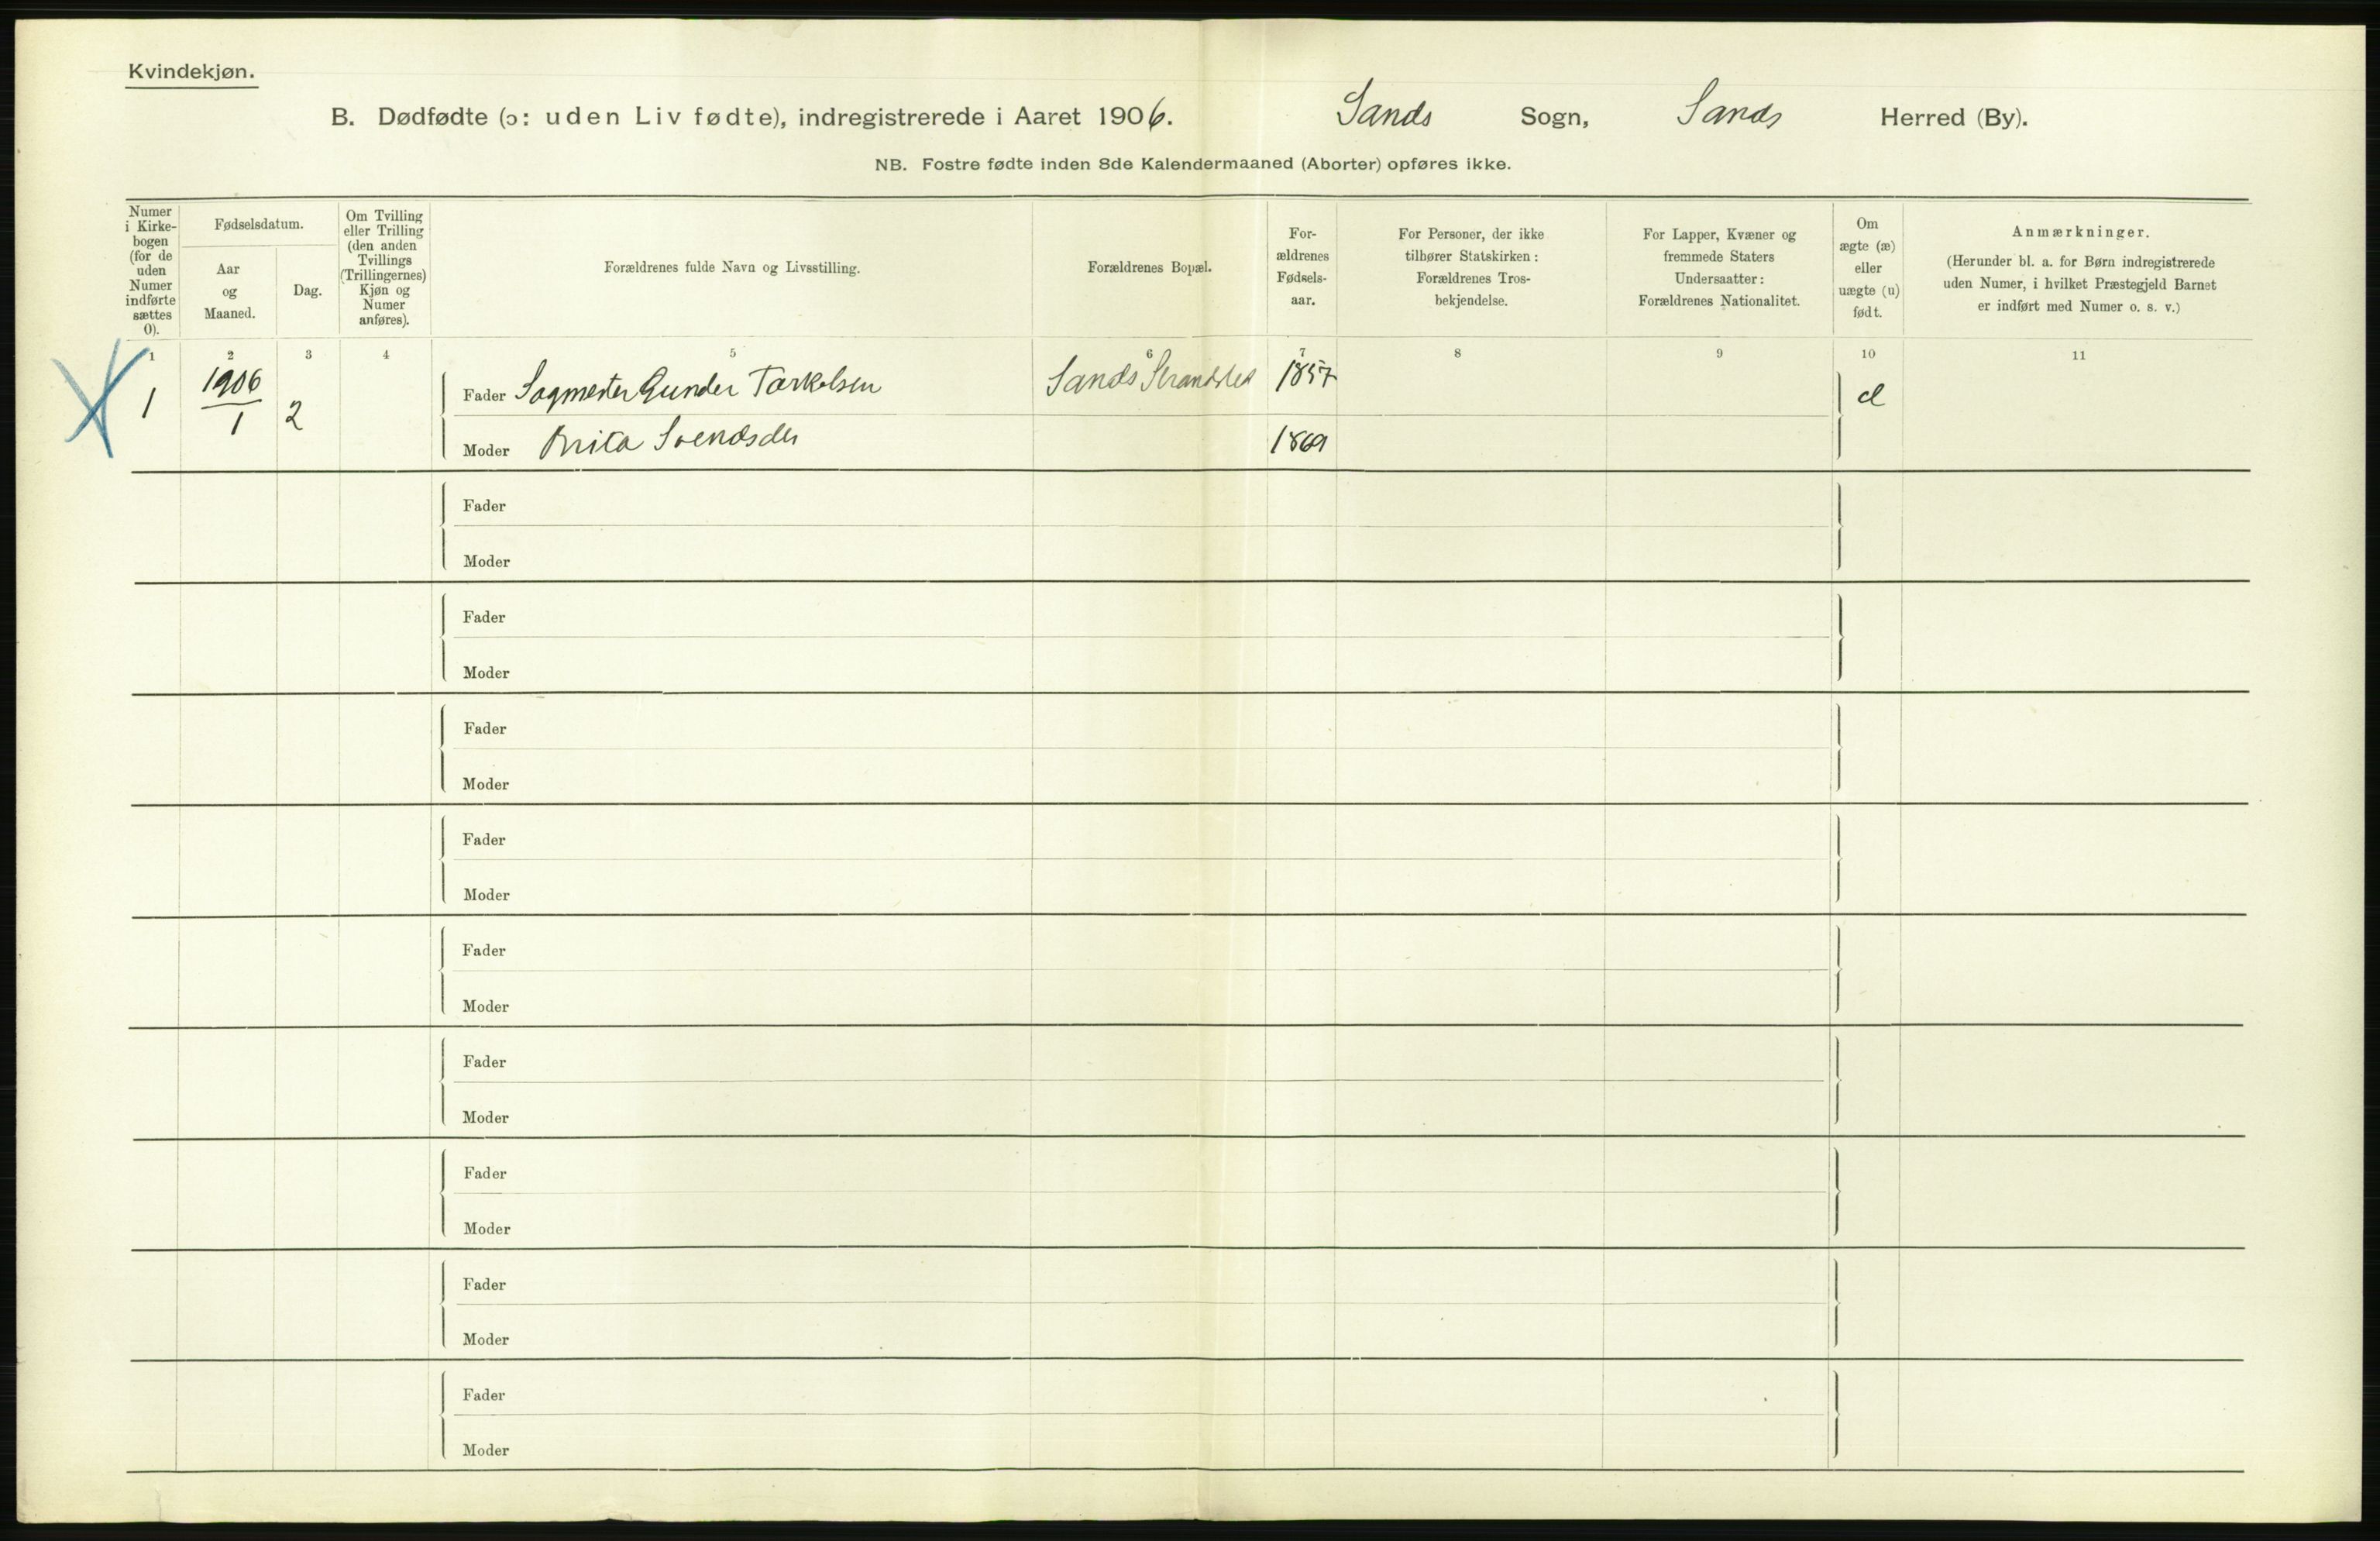 Kvindekjøn.
B. Dødfødte (ɔ: uden Liv fødte), indregistrerede i Aaret 1906. Sands Sogn, Sands Herred (By).
NB. Fostre fødte inden 8de Kalendermaaned (Aborter) opføres ikke.
Numer i Kirke-bogen (for de uden Numer indførte sættes 0).
Fødselsdatum.
Aar og Maaned.
Dag.
Om Tvilling eller Trilling (den anden Tvillings (Trillingernes) Kjøn og Numer anføres).
Forældrenes fulde Navn og Livsstilling.
Forældrenes Bopæl.
For-ældrenes Fødsels-aar.
For Personer, der ikke tilhører Statskirken: Forældrenes Tros-bekjendelse.
For Lapper, Kvæner og fremmede Staters Undersaatter: Forældrenes Nationalitet.
Om ægte (æ) eller uægte (u) født.
Anmærkninger.
(Herunder bl. a. for Børn indregistrerede uden Numer, i hvilket Præstegjeld Barnet er indført med Numer o. s. v.)
1 2 3 4 5 6 7 8 9 10 11
1 1906/1 2 Fader Sagmester Gunder Torkelsen Sands Strandsted 1857 æ
Moder Brita Svendsdtr 1869
Fader
Moder
Fader
Moder
Fader
Moder
Fader
Moder
Fader
Moder
Fader
Moder
Fader
Moder
Fader
Moder
Fader
Moder